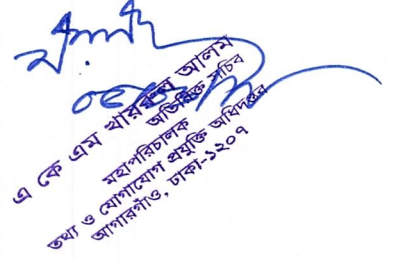 এ কে এম খায়রুল আলম
অতিরিক্ত সচিব
মহাপরিচালক
তথ্য ও যোগাযোগ প্রযুক্তি অধিদপ্তর
আগারগাঁও, ঢাকা-১২০৭